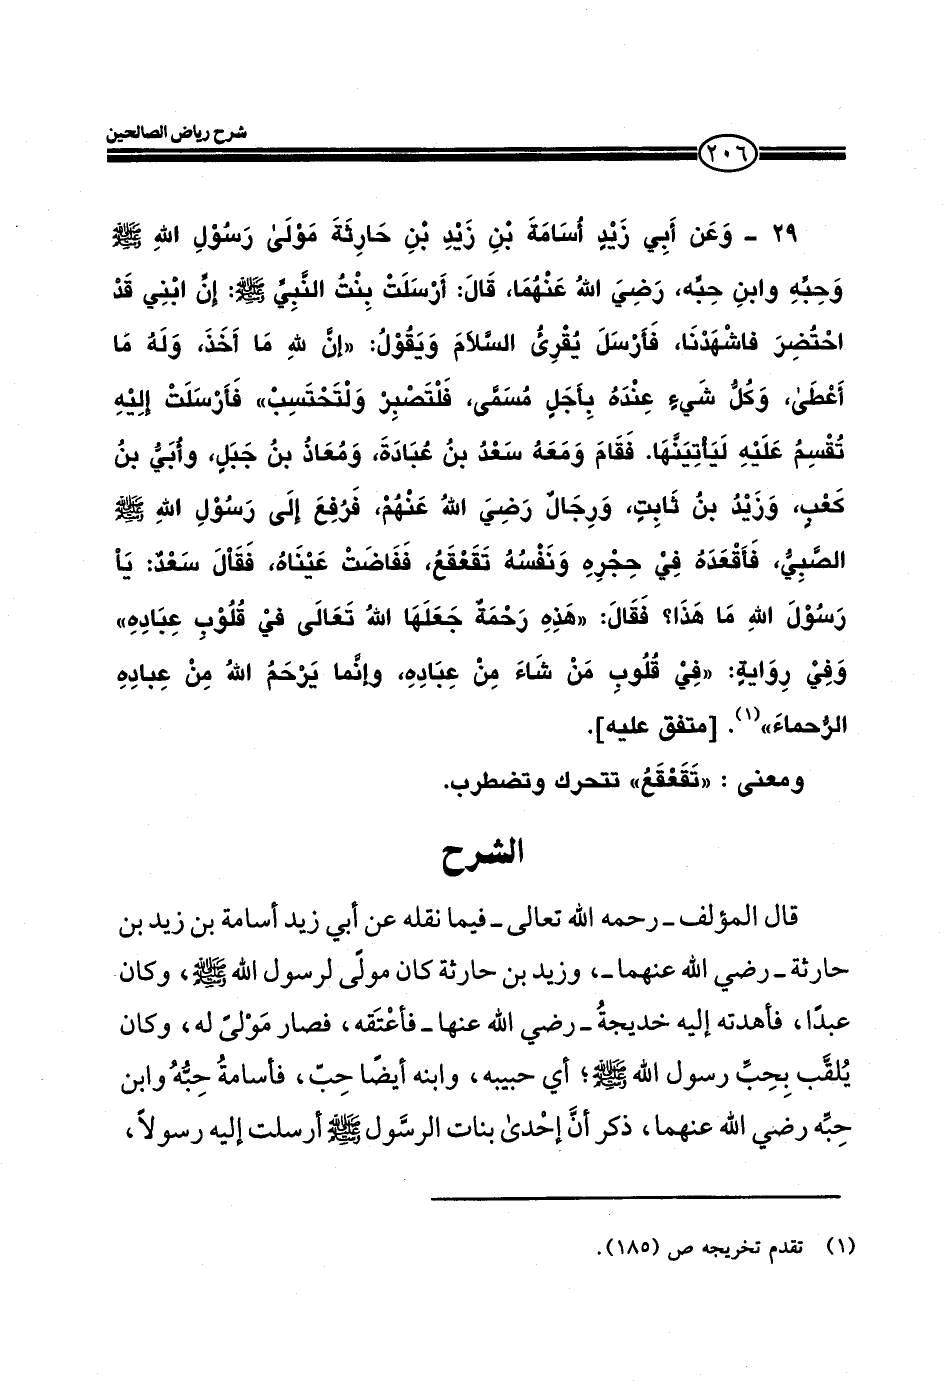 شرح رياض الصالحين
٢٠٦
٢٩ ـ وَعَن أَبِي زَيْدٍ أُسَامَةَ بْنِ زَيْدِ بْنِ حَارِثَةَ مَوْلَىٰ رَسُوْلِ اللهِ ﷺ
وَحِبِّهِ وابنِ حِبِّه، رَضِيَ اللهُ عَنْهُمَا، قَالَ: أَرْسَلَتْ بِنْتُ النَّبِيِّ ﷺ: إنَّ ابْنِي قَدْ
احْتُضِرَ فاشْهَدْنَا، فَأَرْسَلَ يُقْرِئُ السَّلاَمَ وَيَقُوْلُ: «إنَّ للهِ مَا أَخَذَ، وَلَهُ مَا
أَعْطَىٰ، وَكُلُّ شَيءٍ عِنْدَهُ بِأَجَلٍ مُسَمَّى، فَلْتَصْبِرْ وَلْتَحْتَسِبْ» فَأَرْسَلَتْ إِلَيْهِ
تُقْسِمُ عَلَيْهِ لَيَأتِيَنَّهَا. فَقَامَ وَمَعَهُ سَعْدُ بنُ عُبَادَةَ، وَمُعَاذُ بنُ جَبَلٍ، وأُبَيُّ بنُ
كَعْبٍ، وَزَيْدُ بنُ ثَابِتٍ، وَرِجَالٌ رَضِيَ اللهُ عَنْهُمْ، فَرُفِعَ إِلَى رَسُوْلِ اللهِ ﷺ
الصَّبِيُّ، فَأَقْعَدَهُ فِيْ حِجْرِهِ وَنَفْسُهُ تَقَعْقَعُ، فَفَاضَتْ عَيْنَاهُ، فَقَاْلَ سَعْدٌ: يَاْ
رَسُوْلَ اللهِ مَا هَذَا؟ فَقَالَ: «هَذِهِ رَحْمَةٌ جَعَلَهَا اللهُ تَعَالَى فيْ قُلُوْبِ عِبَادِهِ»
وَفِيْ رِوَايةٍ: «فِيْ قُلُوبِ مَنْ شَاءَ مِنْ عِبَادِهِ، وإنَّما يَرْحَمُ اللهُ مِنْ عِبادِهِ
الرُّحماءَ»(١). [متفق عليه].
ومعنى : «تَقَعْقَعُ» تتحرك وتضطرب.
الشرح
قال المؤلف ـ رحمه الله تعالى ـ فيما نقله عن أبي زيد أسامة بن زيد بن
حارثة ـ رضي الله عنهما ـ، وزيد بن حارثة كان مولًى لرسول الله ﷺ، وكان
عبدًا، فأهدته إليه خديجةُ ـ رضي الله عنها ـ فأعْتَقه، فصار مَوْلىً له، وكان
يُلقَّب بِحِبِّ رسول الله ﷺ؛ أي حبيبه، وابنه أيضًا حِبّ، فأسامةُ حِبُّهُ وابن
حِبِّه رضي الله عنهما، ذكر أنَّ إحْدىٰ بنات الرسَّول ﷺ أرسلت إليه رسولاً،
(١) تقدم تخريجه ص (١٨٥).